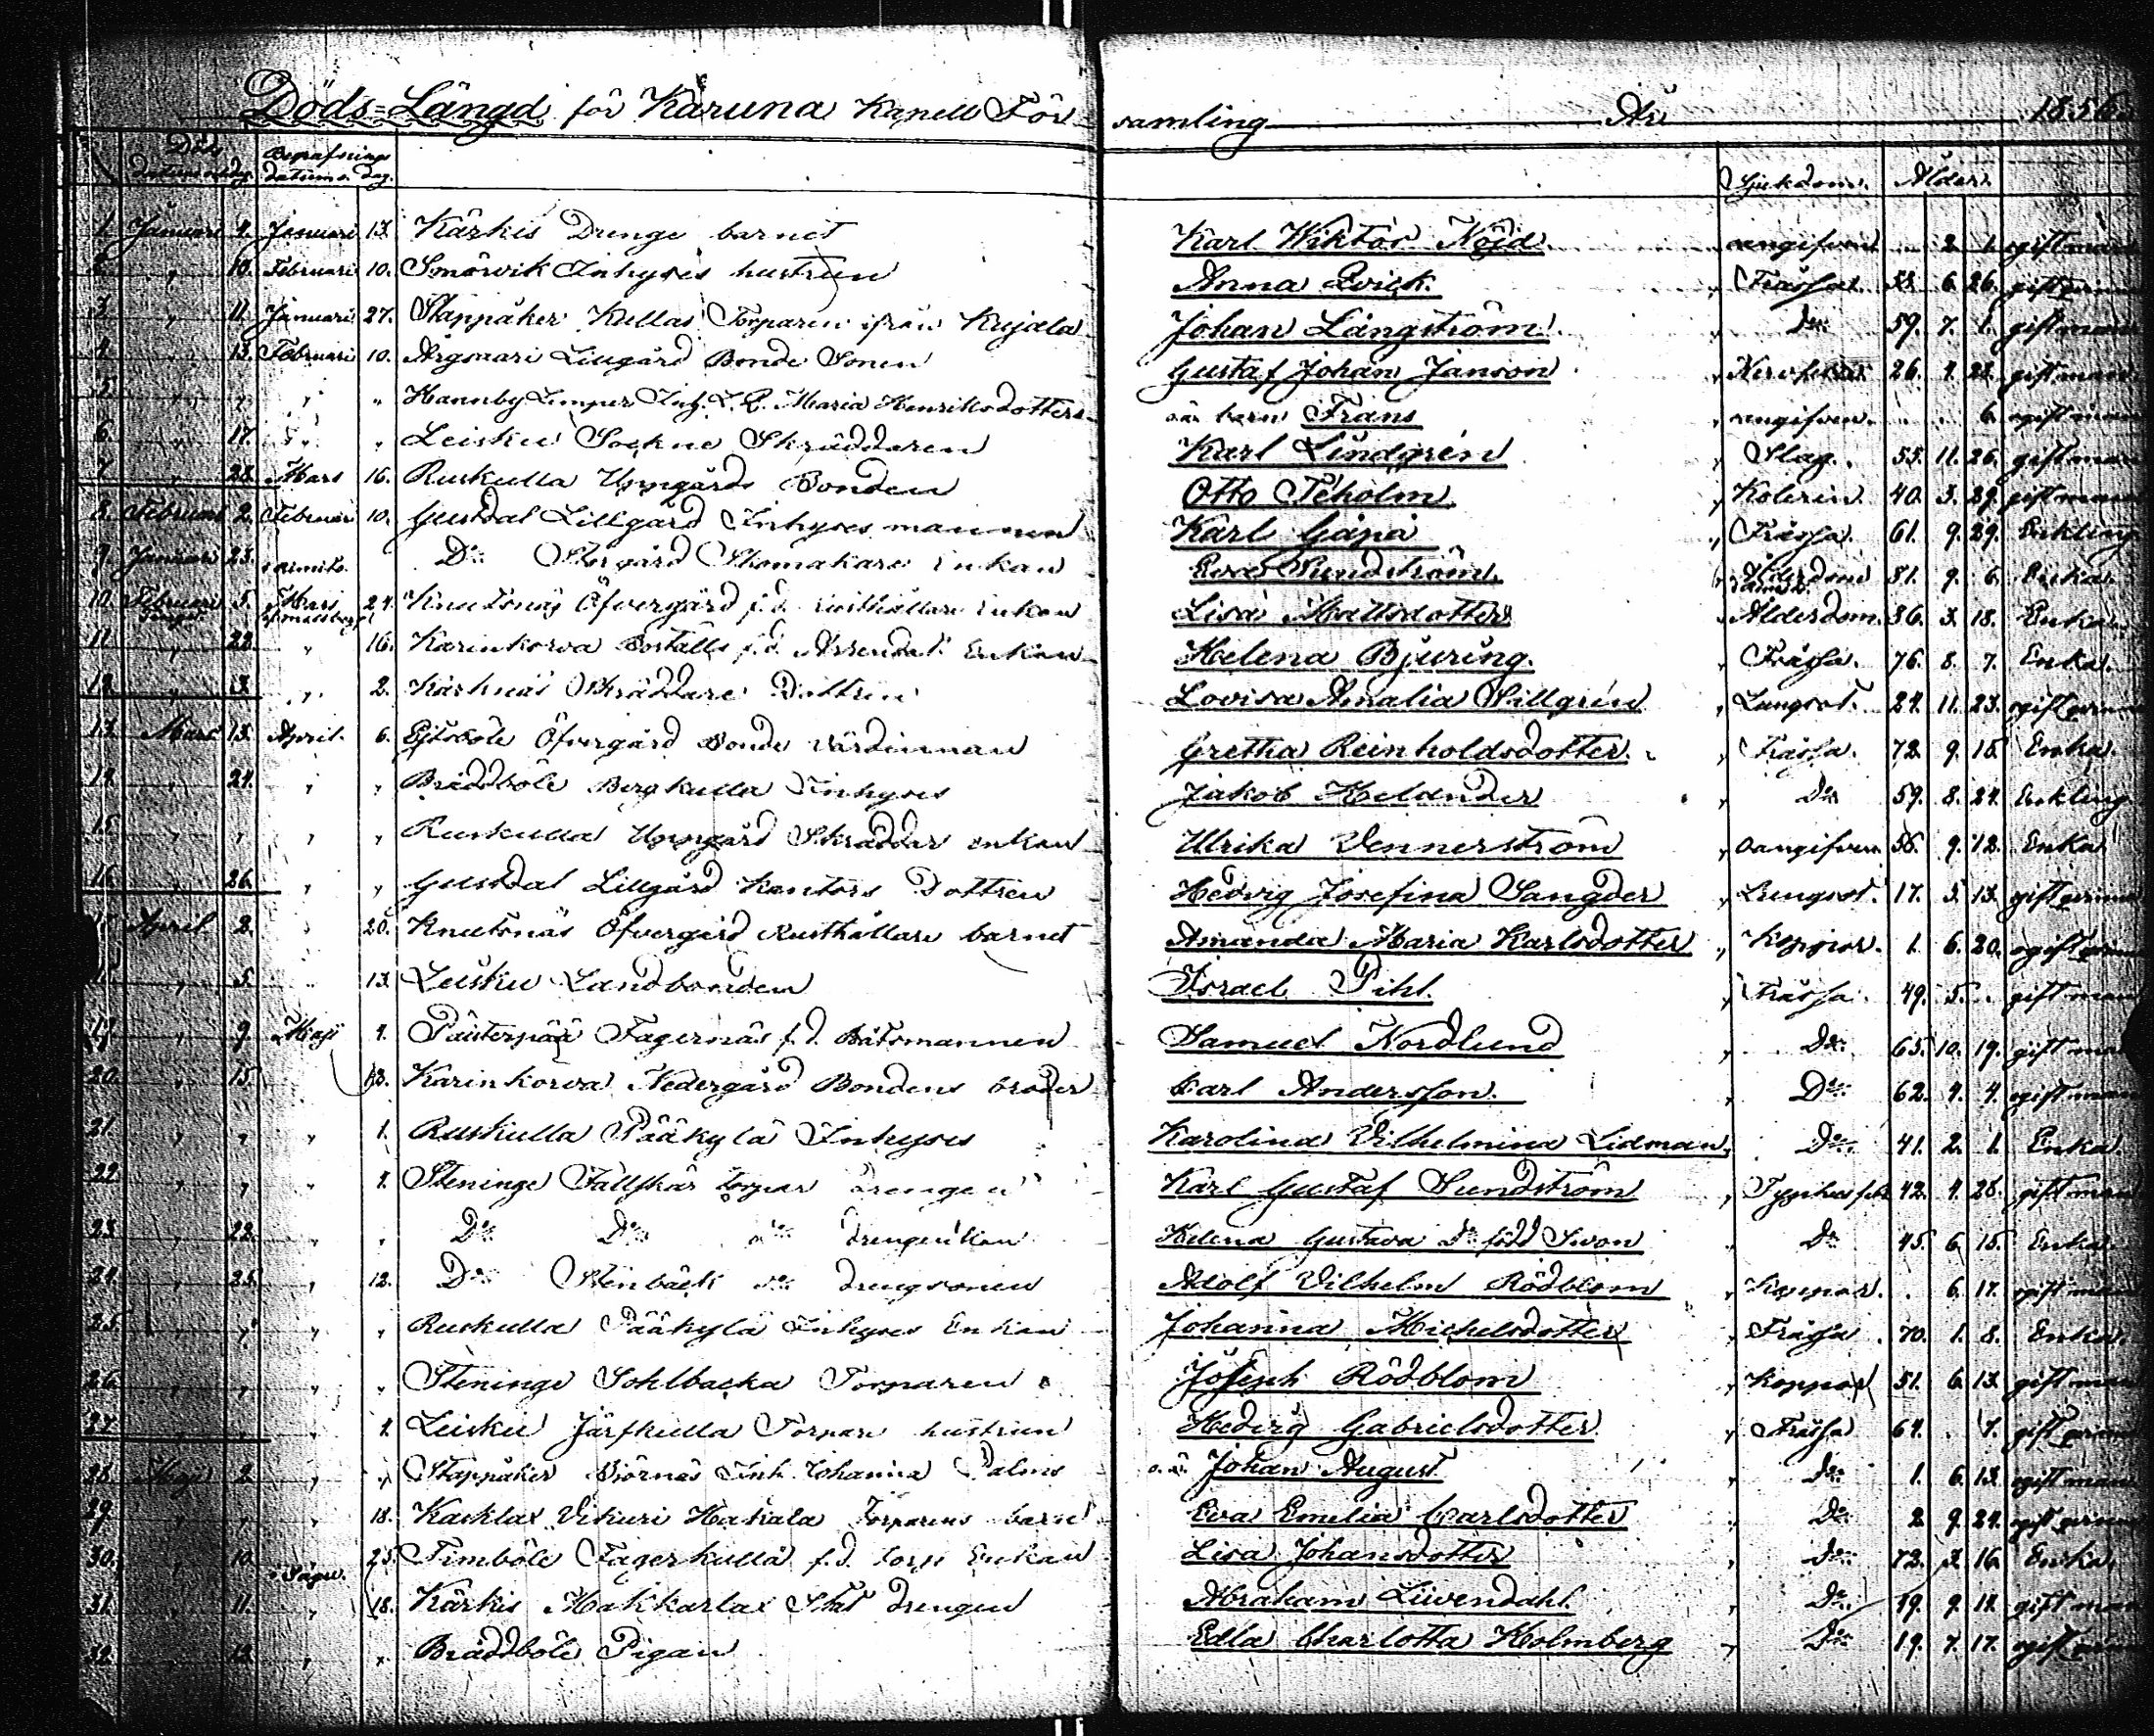 Döds-Längd för Karuna Kapell Församling År 1856.
Döds datum och dag. Begrafnings datum o. dag. Sjukdom. Ålder.
1. Januari 4. Januari 13. Kärkis Drenge barnet Karl Wiktor Nöjd oangifven 2. 1. ogift man
2. " 10. Februari 10. Smörvik Inhyses hustrun Anna Qvick. Frässa. 6. 26. gift qvinna
3. " 11. Januari 27. Stappåker Kullas Torparen ifrån Kujala Johan Långström. " Do 59. 7. 1. gift man
4. " 13. Februari 10. Argsmari Lillgård Bonde Sonen Gustaf Johan Janson " Nervfeber 26. 4. 22. gift man
5. " " " " Hannby Inh. Maria Henriksdotters o.ä. barn Frans " oangifven. 6. ogift man
6. " 17. " " Leisku Sockne Skräddaren Karl Lindgrén " Slag. 55. 11. 26. gift man
7. " 28. Mars 16. Ruskulla Uppgård Bonden Otto Teholm. " Kolerin. 40. 3. 29. gift man
8. Februari 2. Februari 10. Gustdal Lillgård Inhyses mannen Karl Gäpä " Frässa. 61. 9. 29. Enkling
9. Januari 23. Do Storgård Skomakare enkan Eva Sundström. Ålderdom 81. 9. 6. Enka.
10. Februari 5. Mars 24. Knutsnäs Öfvergård f.d. Rusthållare enkan Lisa Mattsdotter " Ålderdom. 86. 3. 18. Enka.
11. " 22. " 16. Karinkorva Boställs f.d. Arrendat. Enkan Helena Bjuring. " Frässa. 76. 8. 7. Enka.
12. " 3. " 2. Kärknäs Skräddare Dottren Lovisa Amalia Sillgrén " Lungsot. 24. 11. 23. ogift qvinna
13. Mars 13. April. 6. Öfvergård Bonde värdinnan Gretha Reinholdsdotter. " Frässa. 72. 9. 15. Enka.
14. " 24. " " Bräddböle Bergkulla Inhyses Jakob Helander " Do 59. 8. 24. Enkling
15. " " " " Ruskulla Uppgård Skräddar enkan Ulrika Vennerström " oangifven 9. 12. Enka
16. " 26. " " Gustdal Lillgård Kantors Dottren Hedvig Josefina Sangder " Lungsot. 17. 5. 13. gift qvinna
17. April 2. " 20. Knutsnäs Öfvergård Rusthållare barnet Amanda Maria Karlsdotter " Koppor. 1. 6. 20. ogift qvinna
18. " 5. " 13. Leisku Landbonden Israel Pihl. " Frässa. 49. 5. gift man
19. " 9. Maji 4. Päiterpää Fagernäs f.d. Båtsmannen Samuel Nordlund " Do 65. 10. 19. gift man
20. " 15. Karinkorva Nedergård Bondens broder Carl Andersson. " Do 62. 4. 4. ogift man
21. " " " 1. Ruskulla Pääkylä Inhyses Karolina Vilhelmina Lidman " Do 41. 2. 1. Enka.
22. " " " 4. Steninge Fallskär torpar drengen Karl Gustaf Sundström " 42. 4. 28. gift man
23. " 22. " " Do Do Do drengenkan Helena Gustava Do född Swon " Do 45. 6. 15. Enka
24. " 25. " 12. Do Stenbäck Do drengsonen Adolf Vilhelm Rödblom " Koppor. 6. 17. ogift man
25. " " " " Ruskulla Pääkylä Inhyses Enkan Johanna Michelsdotter " Frässa. 70. 1. 8. Enka.
26. " " " " Steninge Sohlbacka Torparen Joseph Rödblom " Koppor 51. 6. 13. gift man
27. " " " 4. Leisku Järfkulla Torpare hustrun Hedvig Gabrielsdotter " Frässa 64. 7. gift qvinna
28. Maji 2. " " Stappåker Björnäs Inh. Johanna Palms o.ä. Johan August " Do 1. 6. 13. ogift man
29. " " " 18. Karklax Vikuri Hakala Torparens barn Eva Emelia Carlsdotter " Do 2 9. 24. ogift qvinna
30. " 10. i Sagu. 25. Timböle Fagerkulla f.d. torp Enkan Lisa Johansdotter " Do 72. 2. 16. Enka.
31. " 11. " 18. Kärkis Makkarlax Stat drengen Abraham Liwendahl. " Do 9. gift man
32. " 12. " " Bräddböle Pigan Edla Charlotta Holmberg " Do 19. 7. 17. ogift qvinna